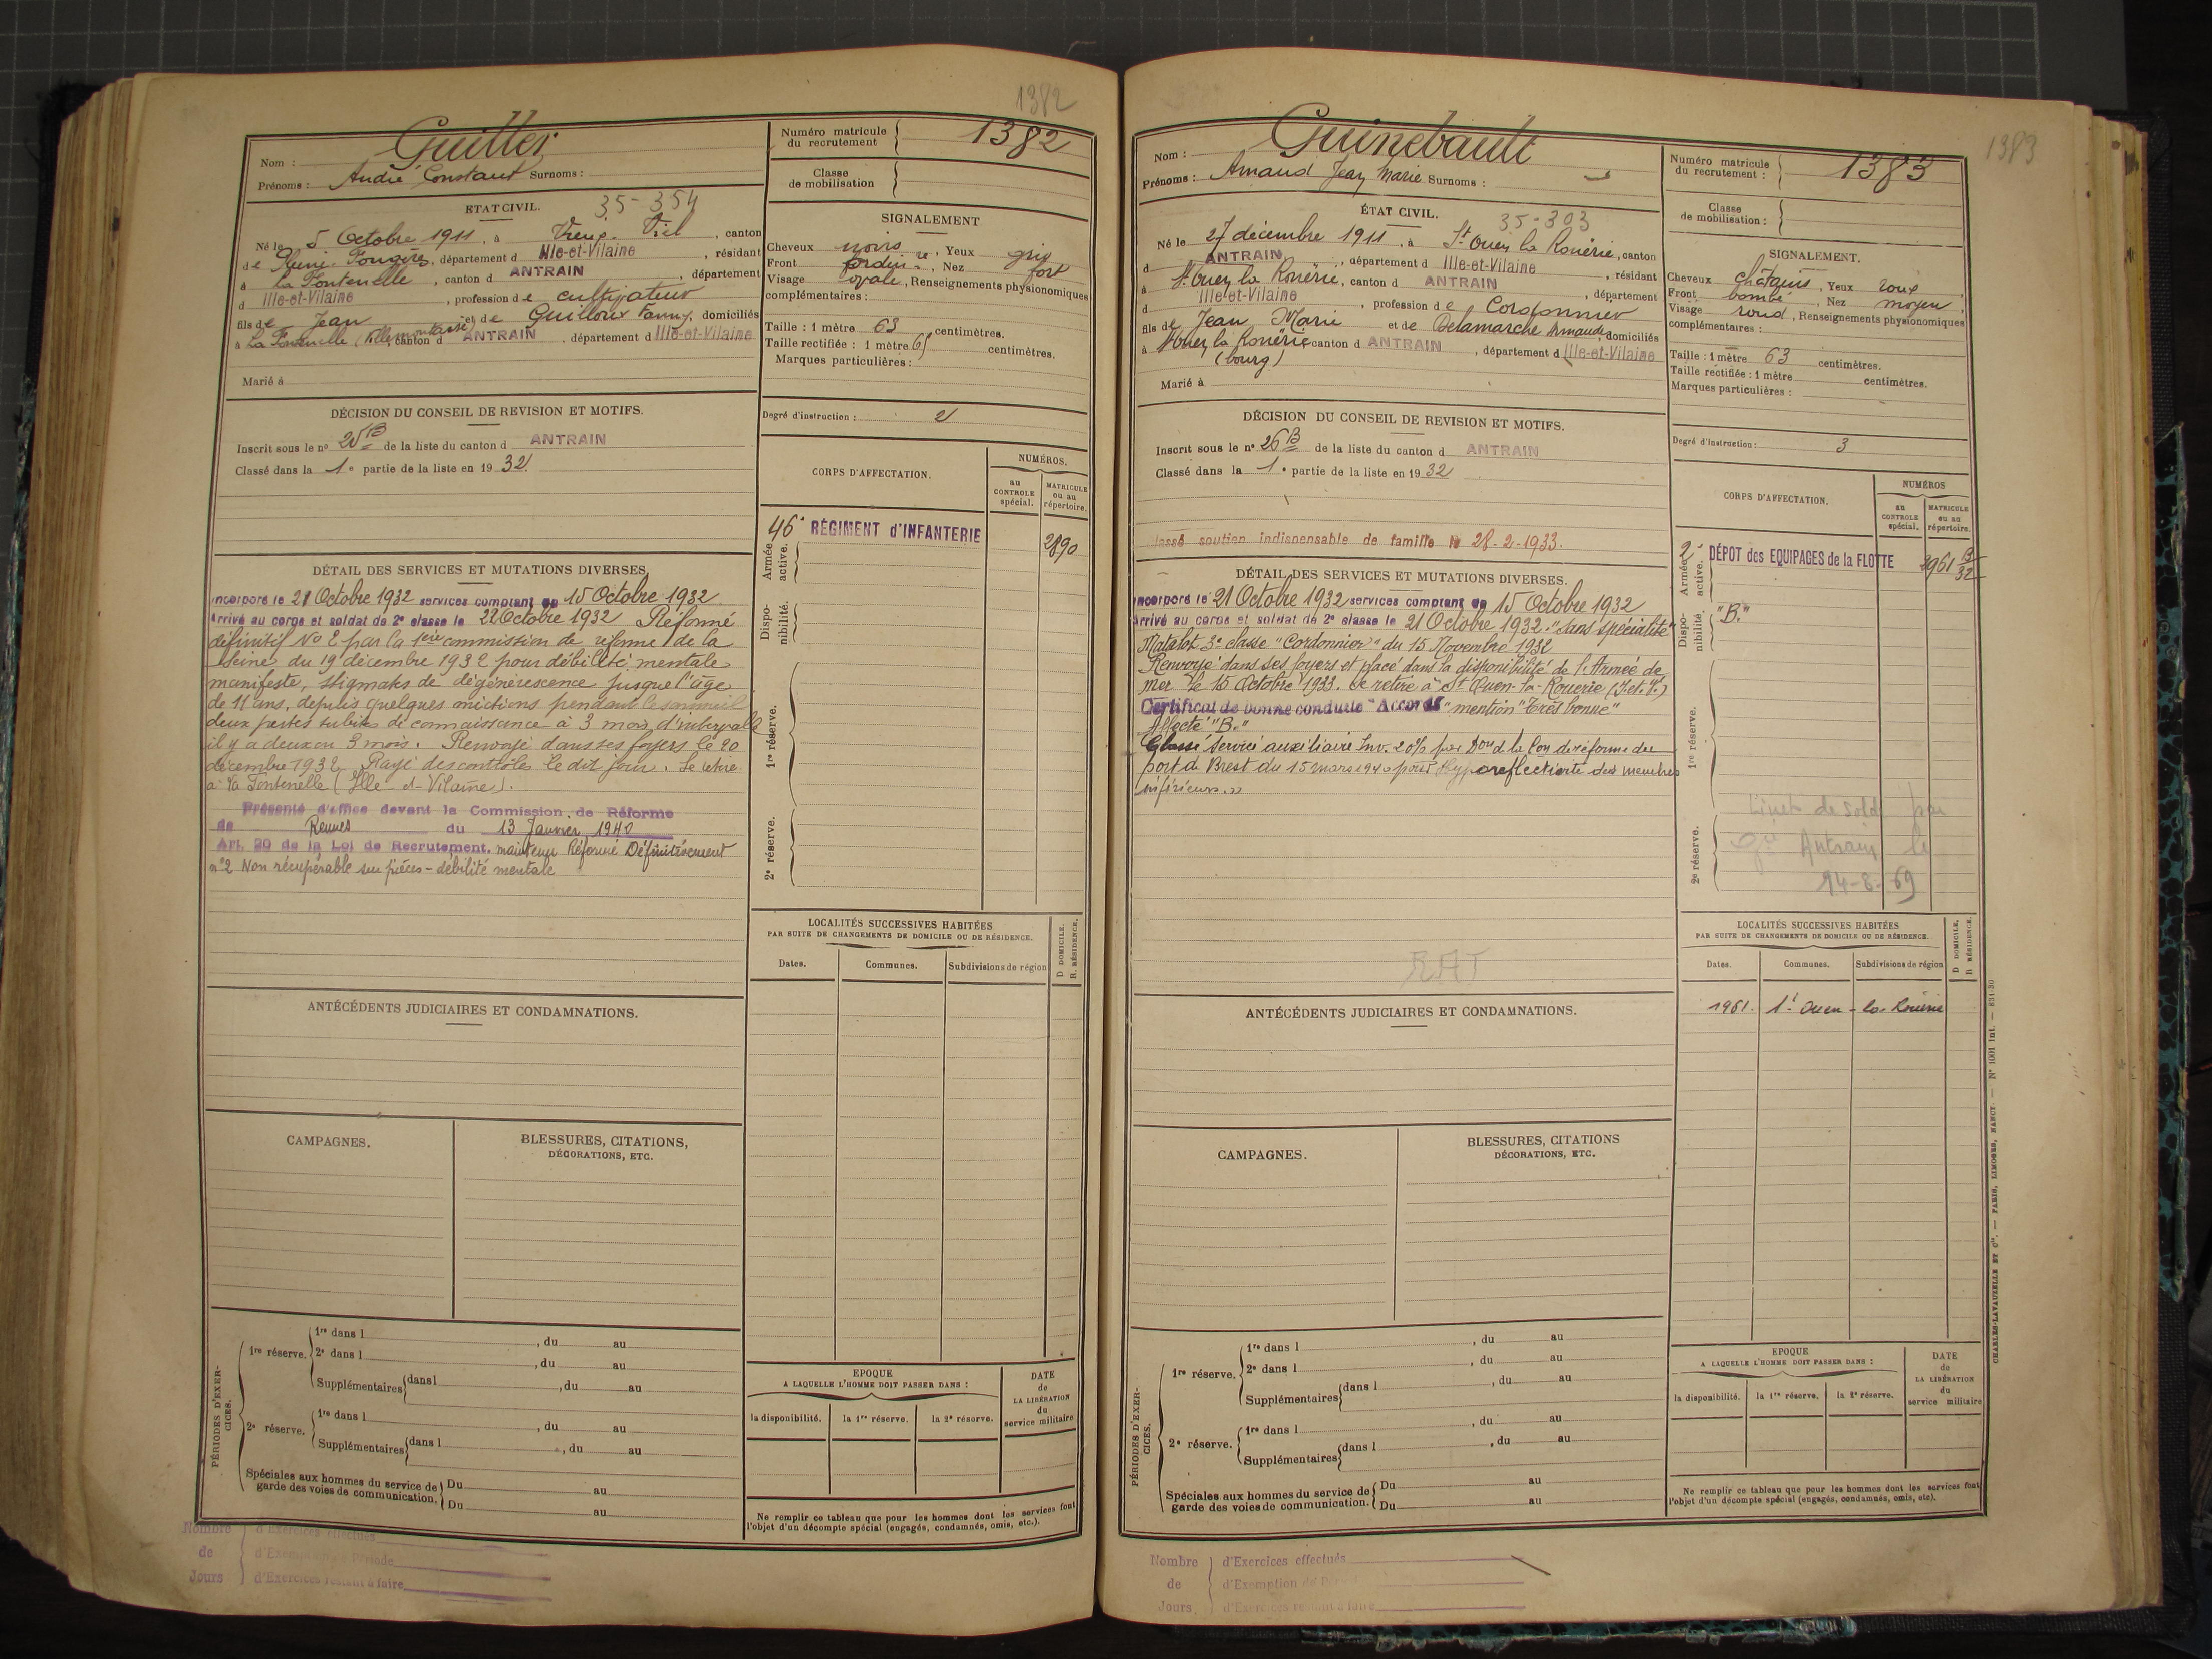 1382
Guiller
Nom :
Prénoms : André Constant Surnoms :
ETAT CIVIL. 35-354
Né le 5 Octobre 1911, à Vieux-Viel, canton
de Pleine-Fougères, département d Ille-et-Vilaine, résidant
à La Fontenelle, canton d ANTRAIN, département
d Ille-et-Vilaine, profession de cultivateur
fils de Jean et de Guilloux Fanny, domiciliés
à La Fontenelle (Villemontasse), canton d ANTRAIN, département d Ille-et-Vilaine
Marié à
DÉCISION DU CONSEIL DE REVISION ET MOTIFS.
Inscrit sous le n° 25 B de la liste du canton d ANTRAIN
Classé dans la 1e partie de la liste en 1932.
DÉTAIL DES SERVICES ET MUTATIONS DIVERSES.
Incorporé le 21 Octobre 1932 services comptant du 15 Octobre 1932
Arrivé au corps et soldat de 2e classe le 22 Octobre 1932 Réformé
définitif No 2 par la 1ere commission de réforme de la
Seine du 19 décembre 1932 pour débilité mentale
manifeste, stigmates de dégénérescence jusque l'âge
de 11 ans, depuis quelques mictions pendant le sommeil
deux pertes subites de connaissance à 3 mois d'intervalle
il y a deux ou 3 mois. Renvoyé dans ses foyers le 20
décembre 1932 Rayé des contrôles le dit jour. Se retire
à La Fontenelle (Ille-et-Vilaine).
Présenté d'office devant la Commission de Réforme
de Rennes du 13 Janvier 1940
Art. 20 de la Loi de Recrutement. maintenu Réformé Définitivement
n°2 Non récupérable sur pièces - débilité mentale
ANTÉCÉDENTS JUDICIAIRES ET CONDAMNATIONS.
CAMPAGNES.
BLESSURES, CITATIONS,
DÉCORATIONS, ETC.
PÉRIODES D'EXER-
CICES.
1re réserve.
1re dans l , du au
2e dans l , du au
Supplémentaires dans l , du au
2e réserve.
1re dans l , du au
Supplémentaires dans l , du au
Spéciales aux hommes du service de
garde des voies de communication.
Du au
Du au
Nombre de Jours
d'Exercices effectués
d'Exemption de Période
d'Exercices restant à faire
Numéro matricule
du recrutement 1382
Classe
de mobilisation
SIGNALEMENT
Cheveux noirs, Yeux gris
Front ordinre, Nez fort
Visage ovale, Renseignements physionomiques
complémentaires :
Taille : 1 mètre 63 centimètres.
Taille rectifiée : 1 mètre 65 centimètres.
Marques particulières :
Degré d'instruction : 2
CORPS D'AFFECTATION.
NUMÉROS.
au
CONTROLE
spécial.
MATRICULE
ou au
répertoire.
Armée
active.
46e RÉGIMENT d'INFANTERIE 2890
Dispo-
nibilité.
1re réserve.
2e réserve.
LOCALITÉS SUCCESSIVES HABITÉES
PAR SUITE DE CHANGEMENTS DE DOMICILE OU DE RÉSIDENCE.
D DOMICILE.
R. RÉSIDENCE.
Dates. Communes. Subdivisions de région
EPOQUE
A LAQUELLE L'HOMME DOIT PASSER DANS :
la disponibilité. la 1re réserve. la 2e réserve.
DATE
de
LA LIBÉRATION
du
service militaire
Ne remplir ce tableau que pour les hommes dont les services font
l'objet d'un décompte spécial (engagés, condamnés, omis, etc.).
1383
Guinebault
Nom :
Prénoms : Armand Jean Marie Surnoms :
ÉTAT CIVIL. 35-303
Né le 27 décembre 1911, à St Ouen la Rouërie, canton
d ANTRAIN, département d Ille-et-Vilaine, résidant
à St Ouen la Rouërie, canton d ANTRAIN, département
d Ille-et-Vilaine, profession de Cordonnier
fils de Jean Marie et de Delamarche Armande, domiciliés
à St Ouen la Rouërie canton d ANTRAIN, département d Ille-et-Vilaine
(bourg)
Marié à
DÉCISION DU CONSEIL DE REVISION ET MOTIFS.
Inscrit sous le n° 26 B de la liste du canton d ANTRAIN
Classé dans la 1e partie de la liste en 1932
Classé soutien indispensable de famille le 28-2-1933.
DÉTAIL DES SERVICES ET MUTATIONS DIVERSES.
Incorporé le 21 Octobre 1932 services comptant du 15 Octobre 1932
Arrivé au corps et soldat de 2e classe le 21 Octobre 1932. "sans spécialité"
Matelot 3e classe "Cordonnier" du 15 Novembre 1932
Renvoyé dans ses foyers et placé dans la disponibilité de l'Armée de
mer le 15 Octobre 1933. Se retire à St Ouen-la-Rouerie (I.et.V.)
Certificat de bonne conduite "Accordé" mention "Très bonne"
Affecté "B."
Classé Service auxiliaire Inv. 20% par Don de la Con de réforme du
port de Brest du 15 mars 1940 pour Hyporeflectivité des membres
inférieurs."
RAT
ANTÉCÉDENTS JUDICIAIRES ET CONDAMNATIONS.
CAMPAGNES.
BLESSURES, CITATIONS
DÉCORATIONS, ETC.
PÉRIODES D'EXER-
CICES.
1re réserve.
1re dans l , du au
2e dans l , du au
Supplémentaires dans l , du au
2e réserve.
1re dans l , du au
Supplémentaires dans l , du au
Spéciales aux hommes du service de
garde des voies de communication.
Du au
Du au
Nombre de Jours
d'Exercices effectués
d'Exemption de Période
d'Exercices restant à faire
Numéro matricule
du recrutement : 1383
Classe
de mobilisation :
SIGNALEMENT.
Cheveux châtains, Yeux roux
Front bombé, Nez moyen
Visage rond, Renseignements physionomiques
complémentaires :
Taille : 1 mètre 63 centimètres.
Taille rectifiée : 1 mètre centimètres.
Marques particulières :
Degré d'instruction : 3
CORPS D'AFFECTATION.
NUMÉROS
au
CONTROLE
spécial.
MATRICULE
ou au
répertoire.
Armée
active.
2e DÉPOT des EQUIPAGES de la FLOTTE 2961 B/32
Dispo-
nibilité.
"B."
1re réserve.
2e réserve.
Livret de solde par
Antrain le
14-8-69
LOCALITÉS SUCCESSIVES HABITÉES
PAR SUITE DE CHANGEMENTS DE DOMICILE OU DE RÉSIDENCE.
D DOMICILE.
R. RÉSIDENCE.
Dates. Communes. Subdivisions de région
1961. St Ouen-la-Rouërie
EPOQUE
A LAQUELLE L'HOMME DOIT PASSER DANS :
la disponibilité. la 1re réserve. la 2e réserve.
DATE
de
LA LIBÉRATION
du
service militaire
Ne remplir ce tableau que pour les hommes dont les services font
l'objet d'un décompte spécial (engagés, condamnés, omis, etc).
CHARLES-LAVAUZELLE ET Cie. — PARIS, LIMOGES, NANCY. — N° 1001 Int. — 831-30